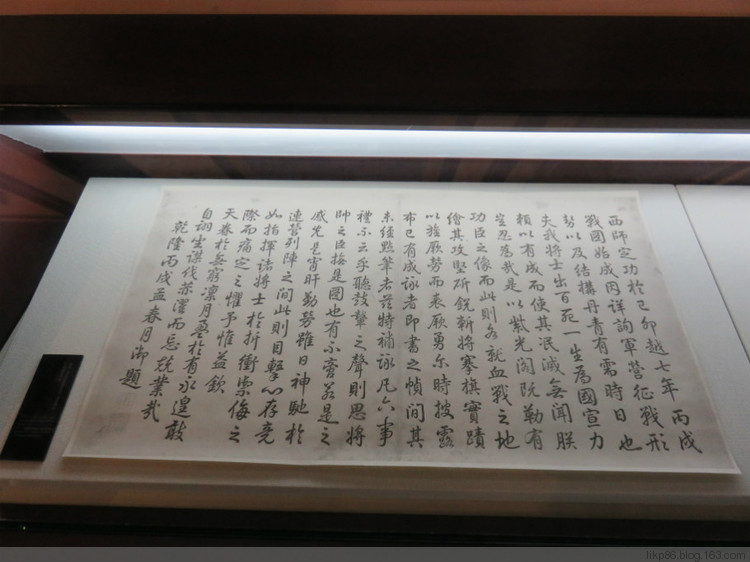 西師定功於己卯越七年丙戌
戰圖始成因詳詢軍營征戰形
勢以及結構丹青有需時日也
夫我將士出百死一生為國宣力
賴以有成而使其泯滅無聞朕
豈忍為哉是以紫光閣既勒有
功臣之像而此則各就血戰之地
繪其攻堅斫銳斬將搴旗實蹟
以旌厥勞而表厥勇尔時披露
布已有成詠者即書之幀間其
未經點筆者茲特補詠凡六事
禮不云乎聽鼓鼙之聲則思將
帥之臣撫是圖也有不啻若是之
戚先是宵旰勤勞雖日神馳於
連營列陣之間此則目擊心存竟
如指揮諸將士於折衝禦侮之
際而痛定之懼予惟益欽
天眷於無窮凜月盈於有永遑敢
自詡生謀伐而忘兢業哉
乾隆丙戌孟春月御題
likp86.blog.163.com